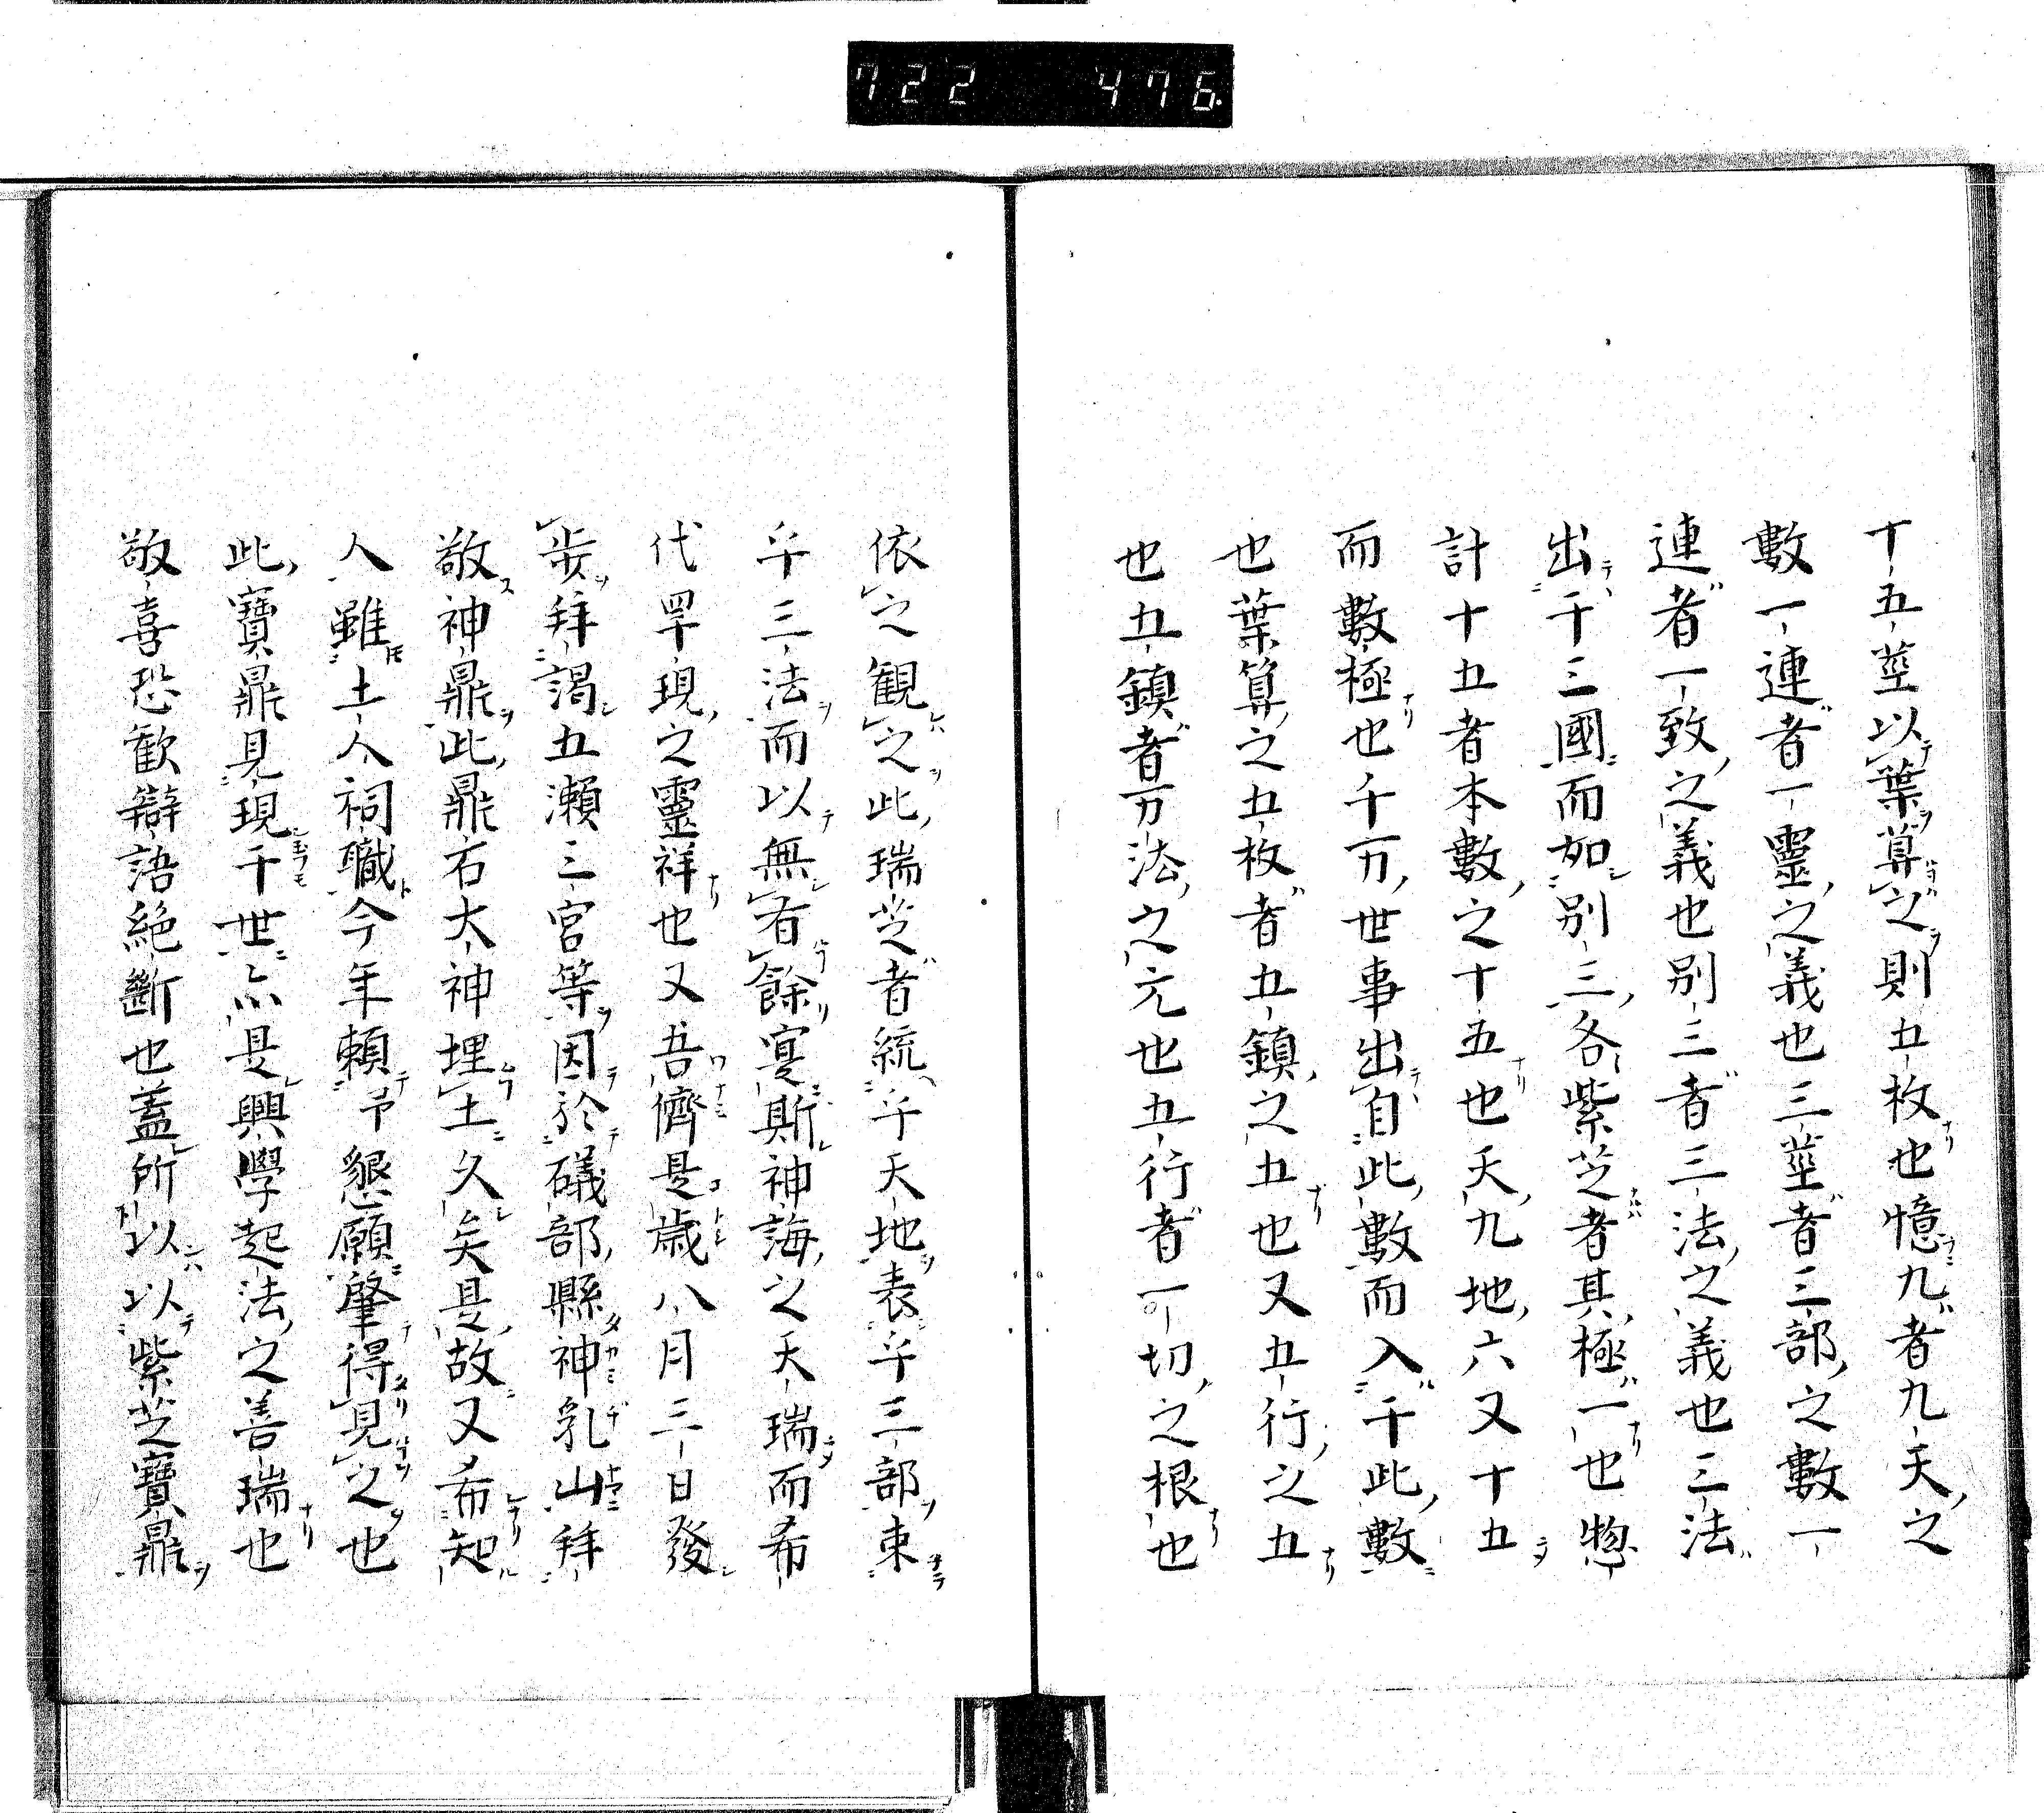 722 476.
十五莖以葉算之則五枚也憶九者九天之
數一連者一靈之義也三莖者三部之數一
連者一致之義也別三者三法之義也三法
出于三國而如別三各紫芝者其極一也惣
計十五者本數之十五也天九地六又十五
而數極也千万世事出自此數而入千此數
也葉算之五枚者五鎮之五也又五行之五
也五鎮者万法之元也五行者一切之根也
依之観之此瑞芝者統乎天地表乎三部束
乎三法而以無有餘寔斯神誨之天瑞而希
代罕現之靈祥也又吾儕是歳八月三日發
歩拜謁五瀬三宮等因於礒部縣神乳山拜
敬神鼎此鼎石大神埋土久矣是故又希知
人雖土人祠職今年頼予懇願肇得見之也
此寶鼎見現千世亦是興學起法之善瑞也
敬喜恐歡辯語絶斷也蓋所以以紫芝寶鼎